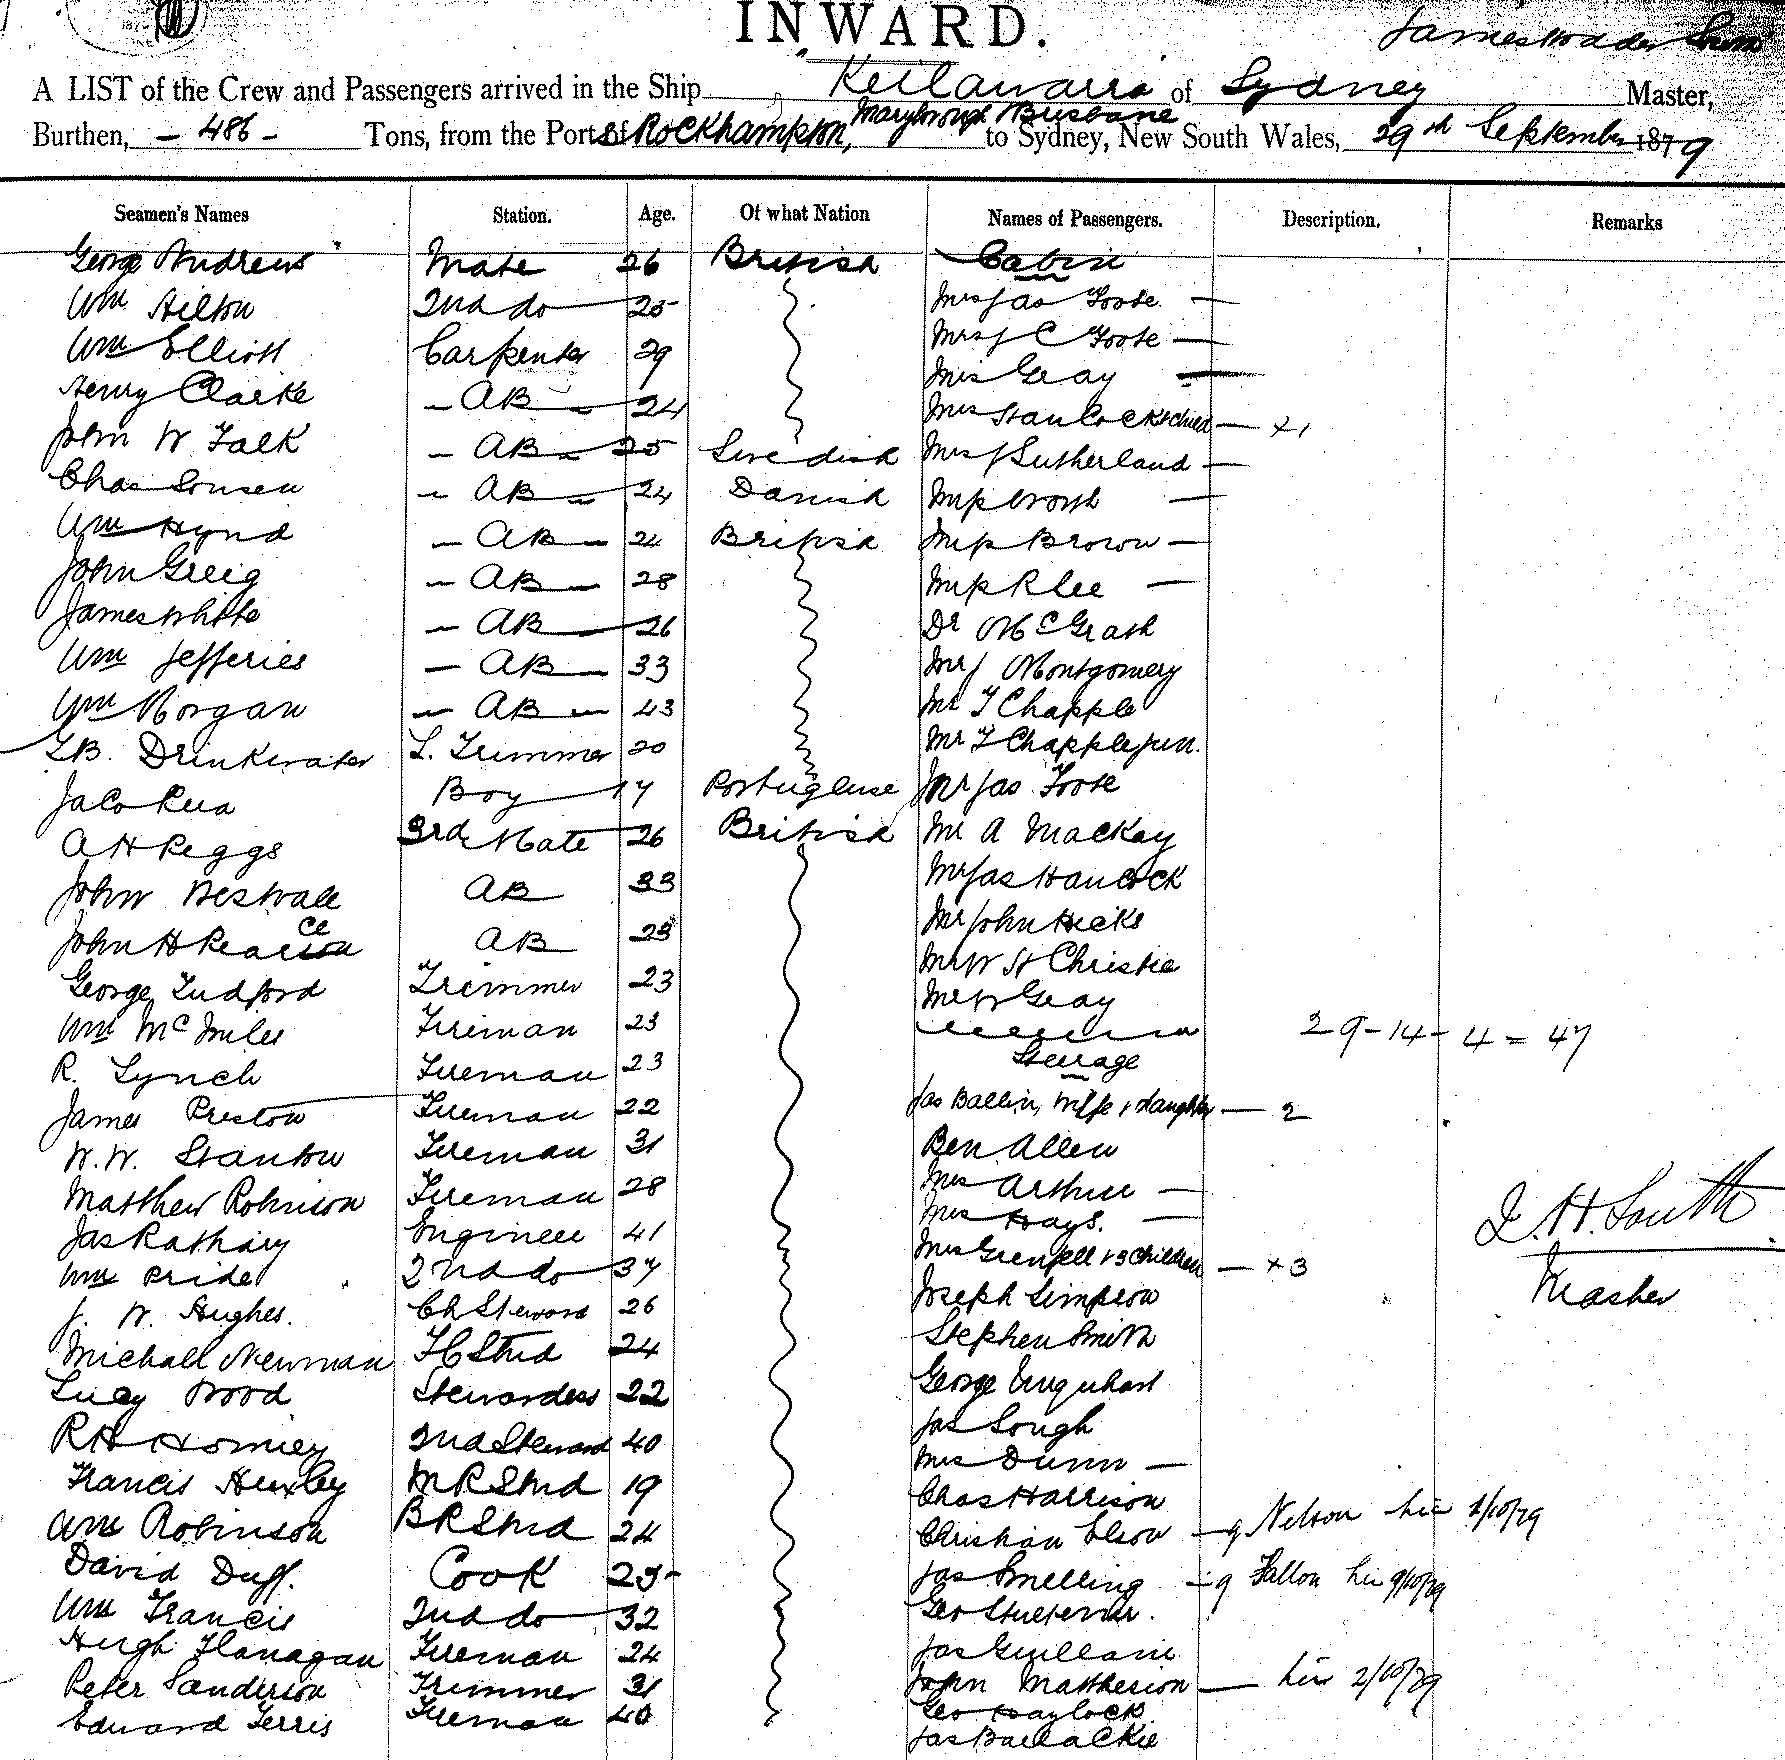 INWARD.
James
A LIST of the Crew and Passengers arrived in the Ship Keilawarra of Sydney Master,
Burthen, - 486 - Tons, from the Port of Rockhampton, Maryborough Brisbane to Sydney, New South Wales, 29th September 1879
Seamen's Names Station. Age. Of what Nation Names of Passengers. Description. Remarks
George Andrews Mate 26 British Cabin
Wm Hilton 2nd do 25 Mrs Jas Foote —
Wm Elliott Carpenter 29 Mrs J C Foote —
Henry Clarke - AB - 24 Gray —
John W Falk - AB - 25 Swedish Mrs Stan Cock & child — + 1
Chas - AB - 24 Danish Mrs J Sutherland —
Wm Hynd - AB - 24 British Miss Brown —
John Greig - AB - 28 Miss R Lee —
James White - AB - 26 Dr McGrath
Wm Jefferies - AB - 33 Mr J Montgomery
Wm Morgan - AB - 43 Mr T Chapple
Drinkwater L. Trimmer 20 Mr T Chapple jun.
Boy 17 Portuguese Mr Jas Foote
A H Peggs 3rd Mate 26 British Mr A Mackay
John AB 33 Mr Jas Hancock
John H Pearce AB 23 Mr John Hicks
George Ludford Trimmer 23 Mr W St Christie
Wm Fireman 23 Mr W Gray
29 - 14 - 4 = 47
R. Lynch Fireman 23 Steerage
James Preston Fireman 22 Jas Ballin, wife & daughter — 2
W. W. Stanton Fireman 31 Ben Allen
Matthew Robinson Fireman 28 Mrs Arthur —
Jas Engineer 41 Mrs Hays. —
Wm Pride 2nd do 37 Mrs Grenfell & 3 children — + 3
J. H. South
Master
J. W. Hughes. Ch Steward 26 Joseph Simpson
Michael Newman FC Stwd 24 Stephen Smith
Lucy Wood Stewardess 22 George Urquhart
R H 2nd Steward 40 Jas Gough
Mrs Dunn —
Francis Huxley MR Stwd 19 Chas Harrison
Wm Robinson BR Stwd 24 Christian Elson — Nelson 2/10/79
David Duff. Cook 25 Jas Smelling — Fallon 9/10/79
Wm Francis 2nd do 32 Geo
Hugh Flanagan Fireman 24 Jas
Peter Sanderson Trimmer 31 John Mattheson — 2/10/79
Edward Ferris Fireman 40 Geo Haylock
Jas